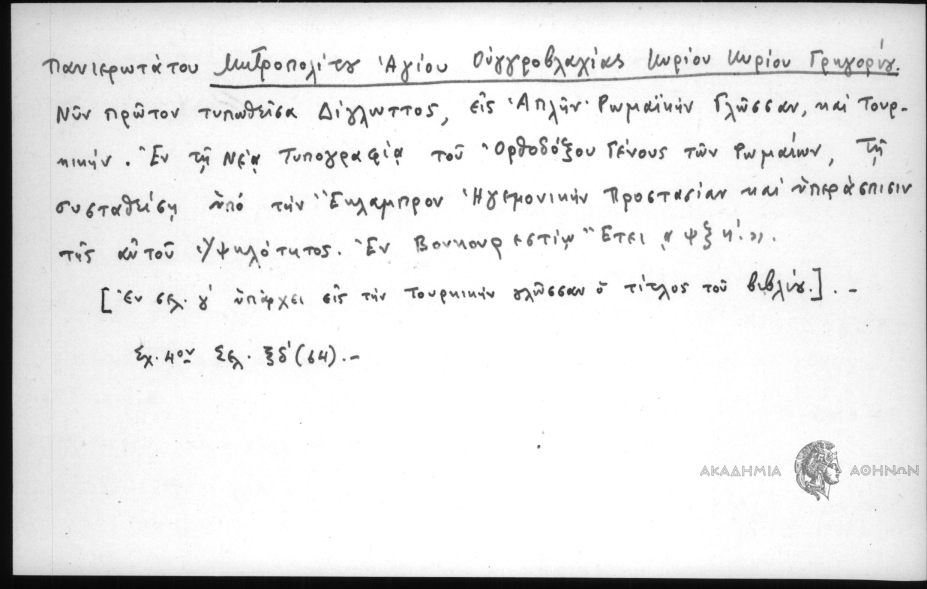 πανιερωτάτου Μητροπολίτου Ἁγίου Οὑγγροβλαχίας Κυρίου Κυρίου Γρηγορίου.
Νῦν πρῶτον τυπωθεῖσα Δίγλωττος, εἰς Ἁπλῆν Ῥωμαϊκὴν Γλῶσσαν, καὶ Τουρ-
κικήν. Ἐν τῇ Νέᾳ Τυπογραφίᾳ τοῦ Ὀρθοδόξου Γένους τῶν Ῥωμαίων, τῇ
συσταθείσῃ ὑπό τὴν Ἔκλαμπρον Ἡγεμονικὴν Προστασίαν καὶ ὑπεράσπισιν
τῆς αὐτοῦ Ὑψηλότητος. Ἐν Βουκουρεστίῳ Ἔτει ͵αψξη΄.».
[Ἐν σελ. γ΄ ὑπάρχει εἰς τὴν Τουρκικὴν γλῶσσαν ὁ τίτλος τοῦ βιβλίου.]. -
Σχ. 4ον Σελ. ξδ΄ (64). -
ΑΚΑΔΗΜΙΑ ΑΘΗΝΩΝ